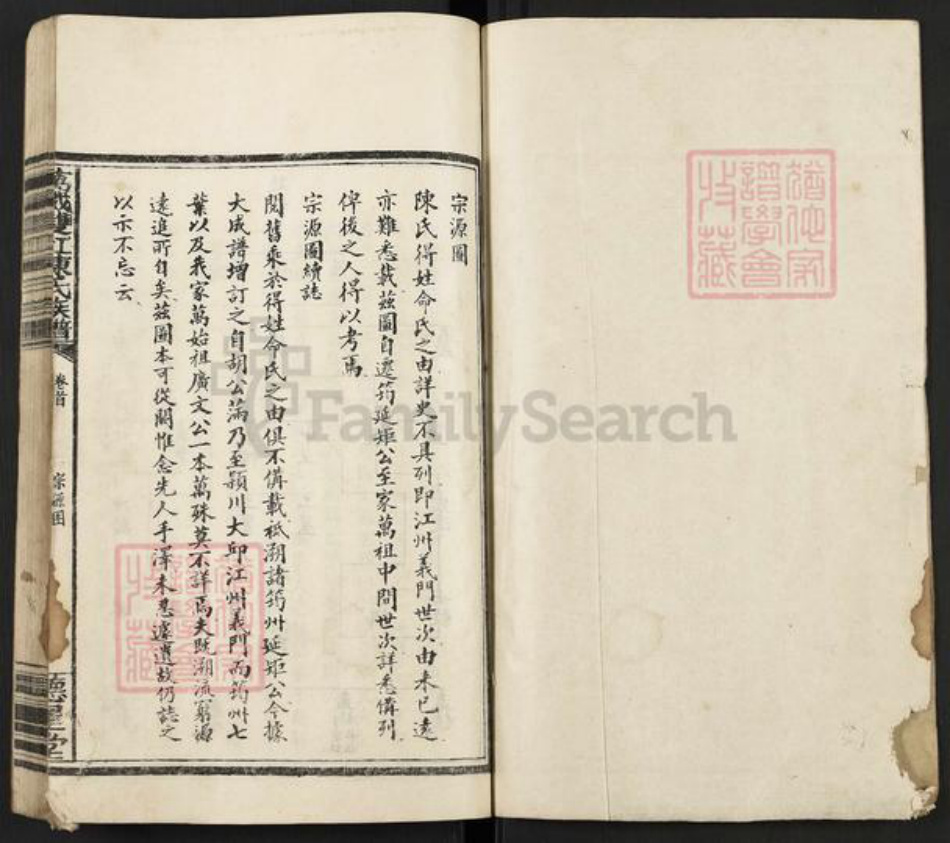 宗源圖
陳氏得姓命氏之由詳史不具列即江州義門世次由來已遠
亦難悉載茲圖自遷筠延矩公至家萬祖中間世次詳悉備列
俾後之人得以考焉
宗源圖續誌
閱舊乘於得姓命氏之由俱不備載祇溯諸筠州延矩公今據
大成譜增訂之自胡公滿乃至潁川大邱江州義門而筠州七
葉以及我家萬始祖廣文公一本萬殊莫不詳焉夫既溯流窮源
遠進所自矣茲圖本可從闕惟念先人手澤未忍遽遺故仍誌之
以示不忘云
萬載雙江陳氏族譜
卷首
宗源圖
德星堂
FamilySearch
猶他家譜學會收藏